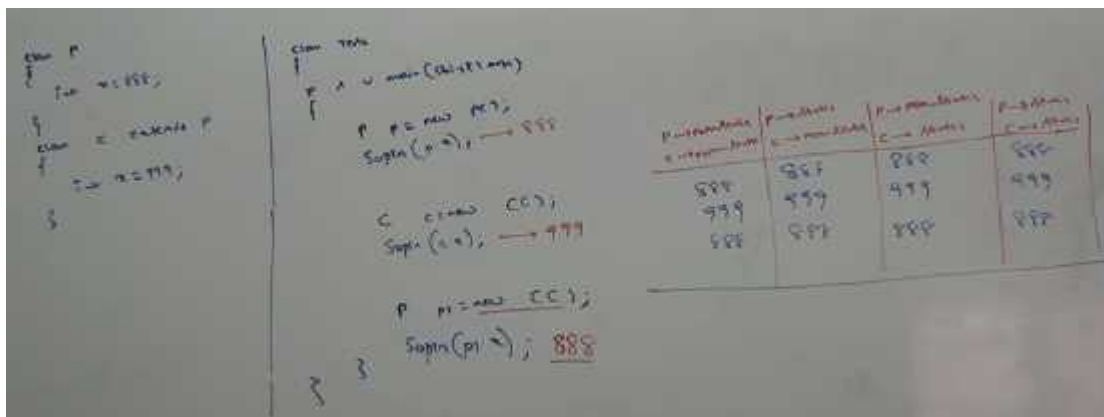 class P
{
int x=888;
}
class C extends P
{
int x=999;
}
class Test
{
P S V main(String[] args)
{
P p=new P();
Sopln(p.x); → 888
C c=new C();
Sopln(c.x); → 999
P p1=new C();
Sopln(p1.x); 888
}
}
P→non-static P→static P→non-static P→static
C→non-static C→non-static C→static C→static
888 888 888 888
999 999 999 999
888 888 888 888